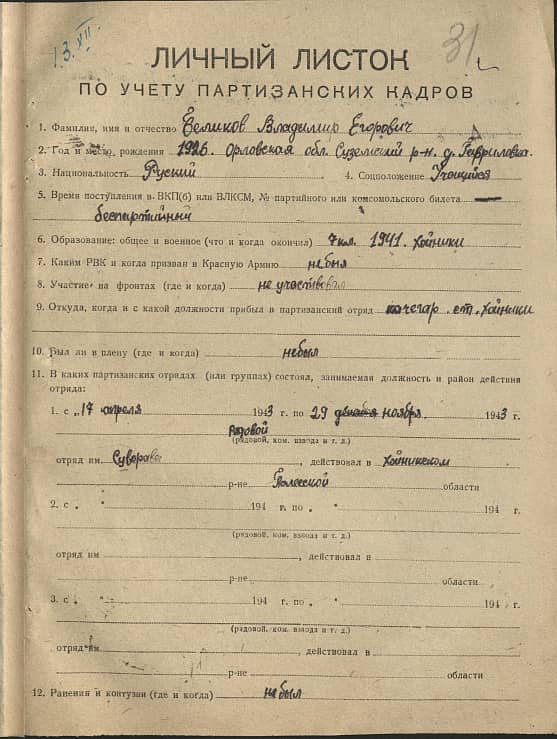 13.XII
31
ЛИЧНЫЙ ЛИСТОК
ПО УЧЕТУ ПАРТИЗАНСКИХ КАДРОВ
1. Фамилия, имя и отчество Великов Владимир Егорович
2. Год и место рождения 1926. Орловская обл. Суземский р-н. д. Гавриловка
3. Национальность Руский 4. Соцположение Учащийся
5. Время поступления в ВКП(б) или ВЛКСМ, № партийного или комсомольского билета —
беспартийный
6. Образование: общее и военное (что и когда окончил) 7 кл. 1941. Хойники
7. Каким РВК и когда призван в Красную Армию небыл
8. Участие на фронтах (где и когда) не участвовал
9. Откуда, когда и с какой должности прибыл в партизанский отряд кочегар. ст. Хойники
10. Был ли в плену (где и когда) небыл
11. В каких партизанских отрядах (или группах) состоял, занимаемая должность и район действия
отряда:
1. с „17 апреля 1943 г. по 29 ноября 1943 г.
Рядовой
(рядовой, ком. взвода и т. д.)
отряд им. Суворова, действовал в Хойникском
р-не Полесской области
2. с „ " 194 г. по „ " 194 г.
(рядовой, ком. взвода и т. д.)
отряд им , действовал в
р-не области
3. с „ " 194 г. по „ " 194 г.
(рядовой, ком. взвода и т. д.)
отряд им , действовал в
р-не области
12. Ранения и контузии (где и когда) небыл